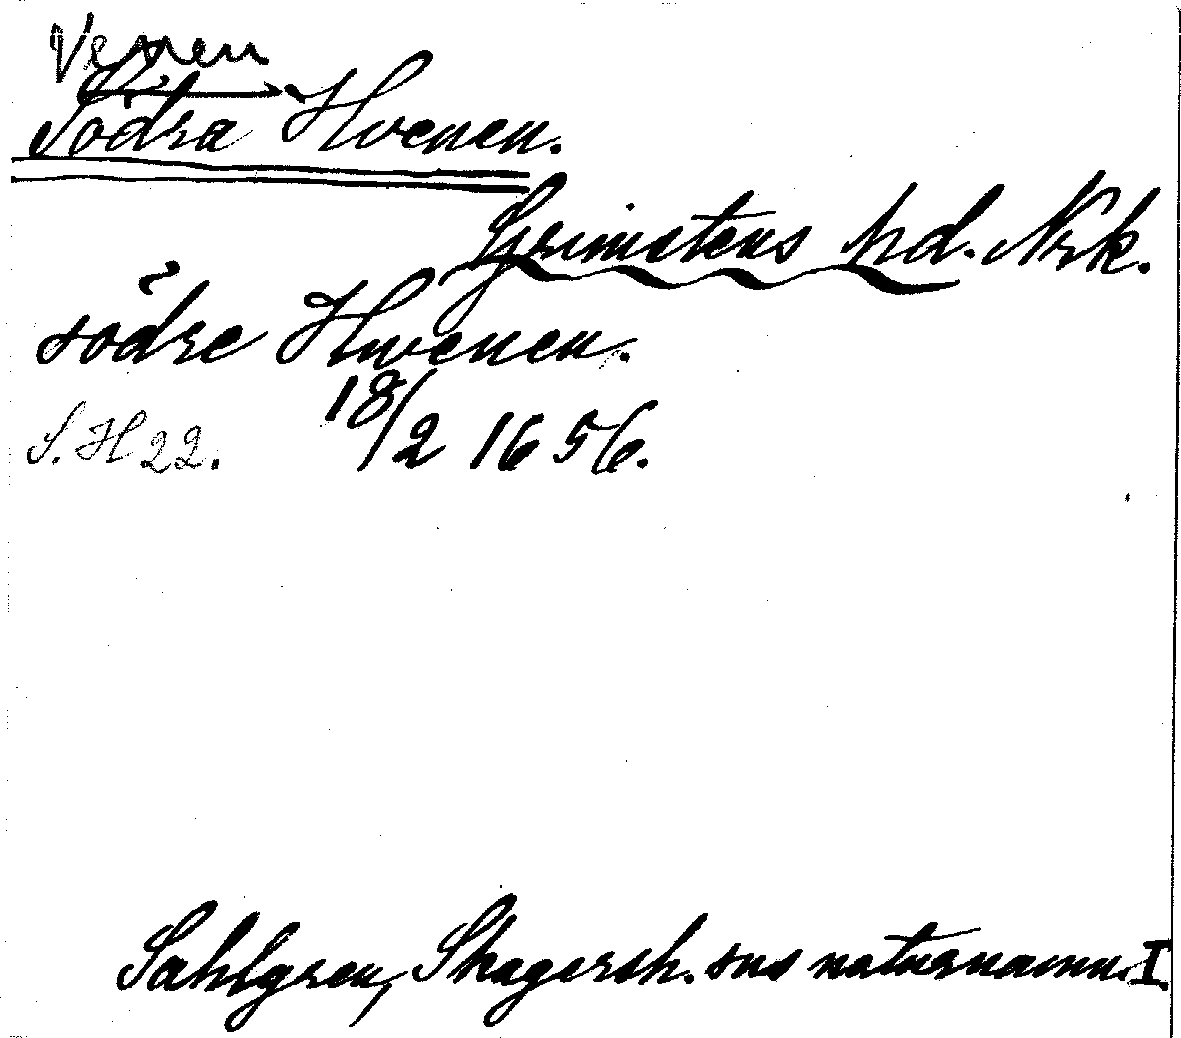 Venen
Södra Hvenen.
Grimstens hd. Nrk.
södre Hwenen.
S. H 22. 18/2 1656.
Sahlgren, Skagersh. sns naturnamn. I.